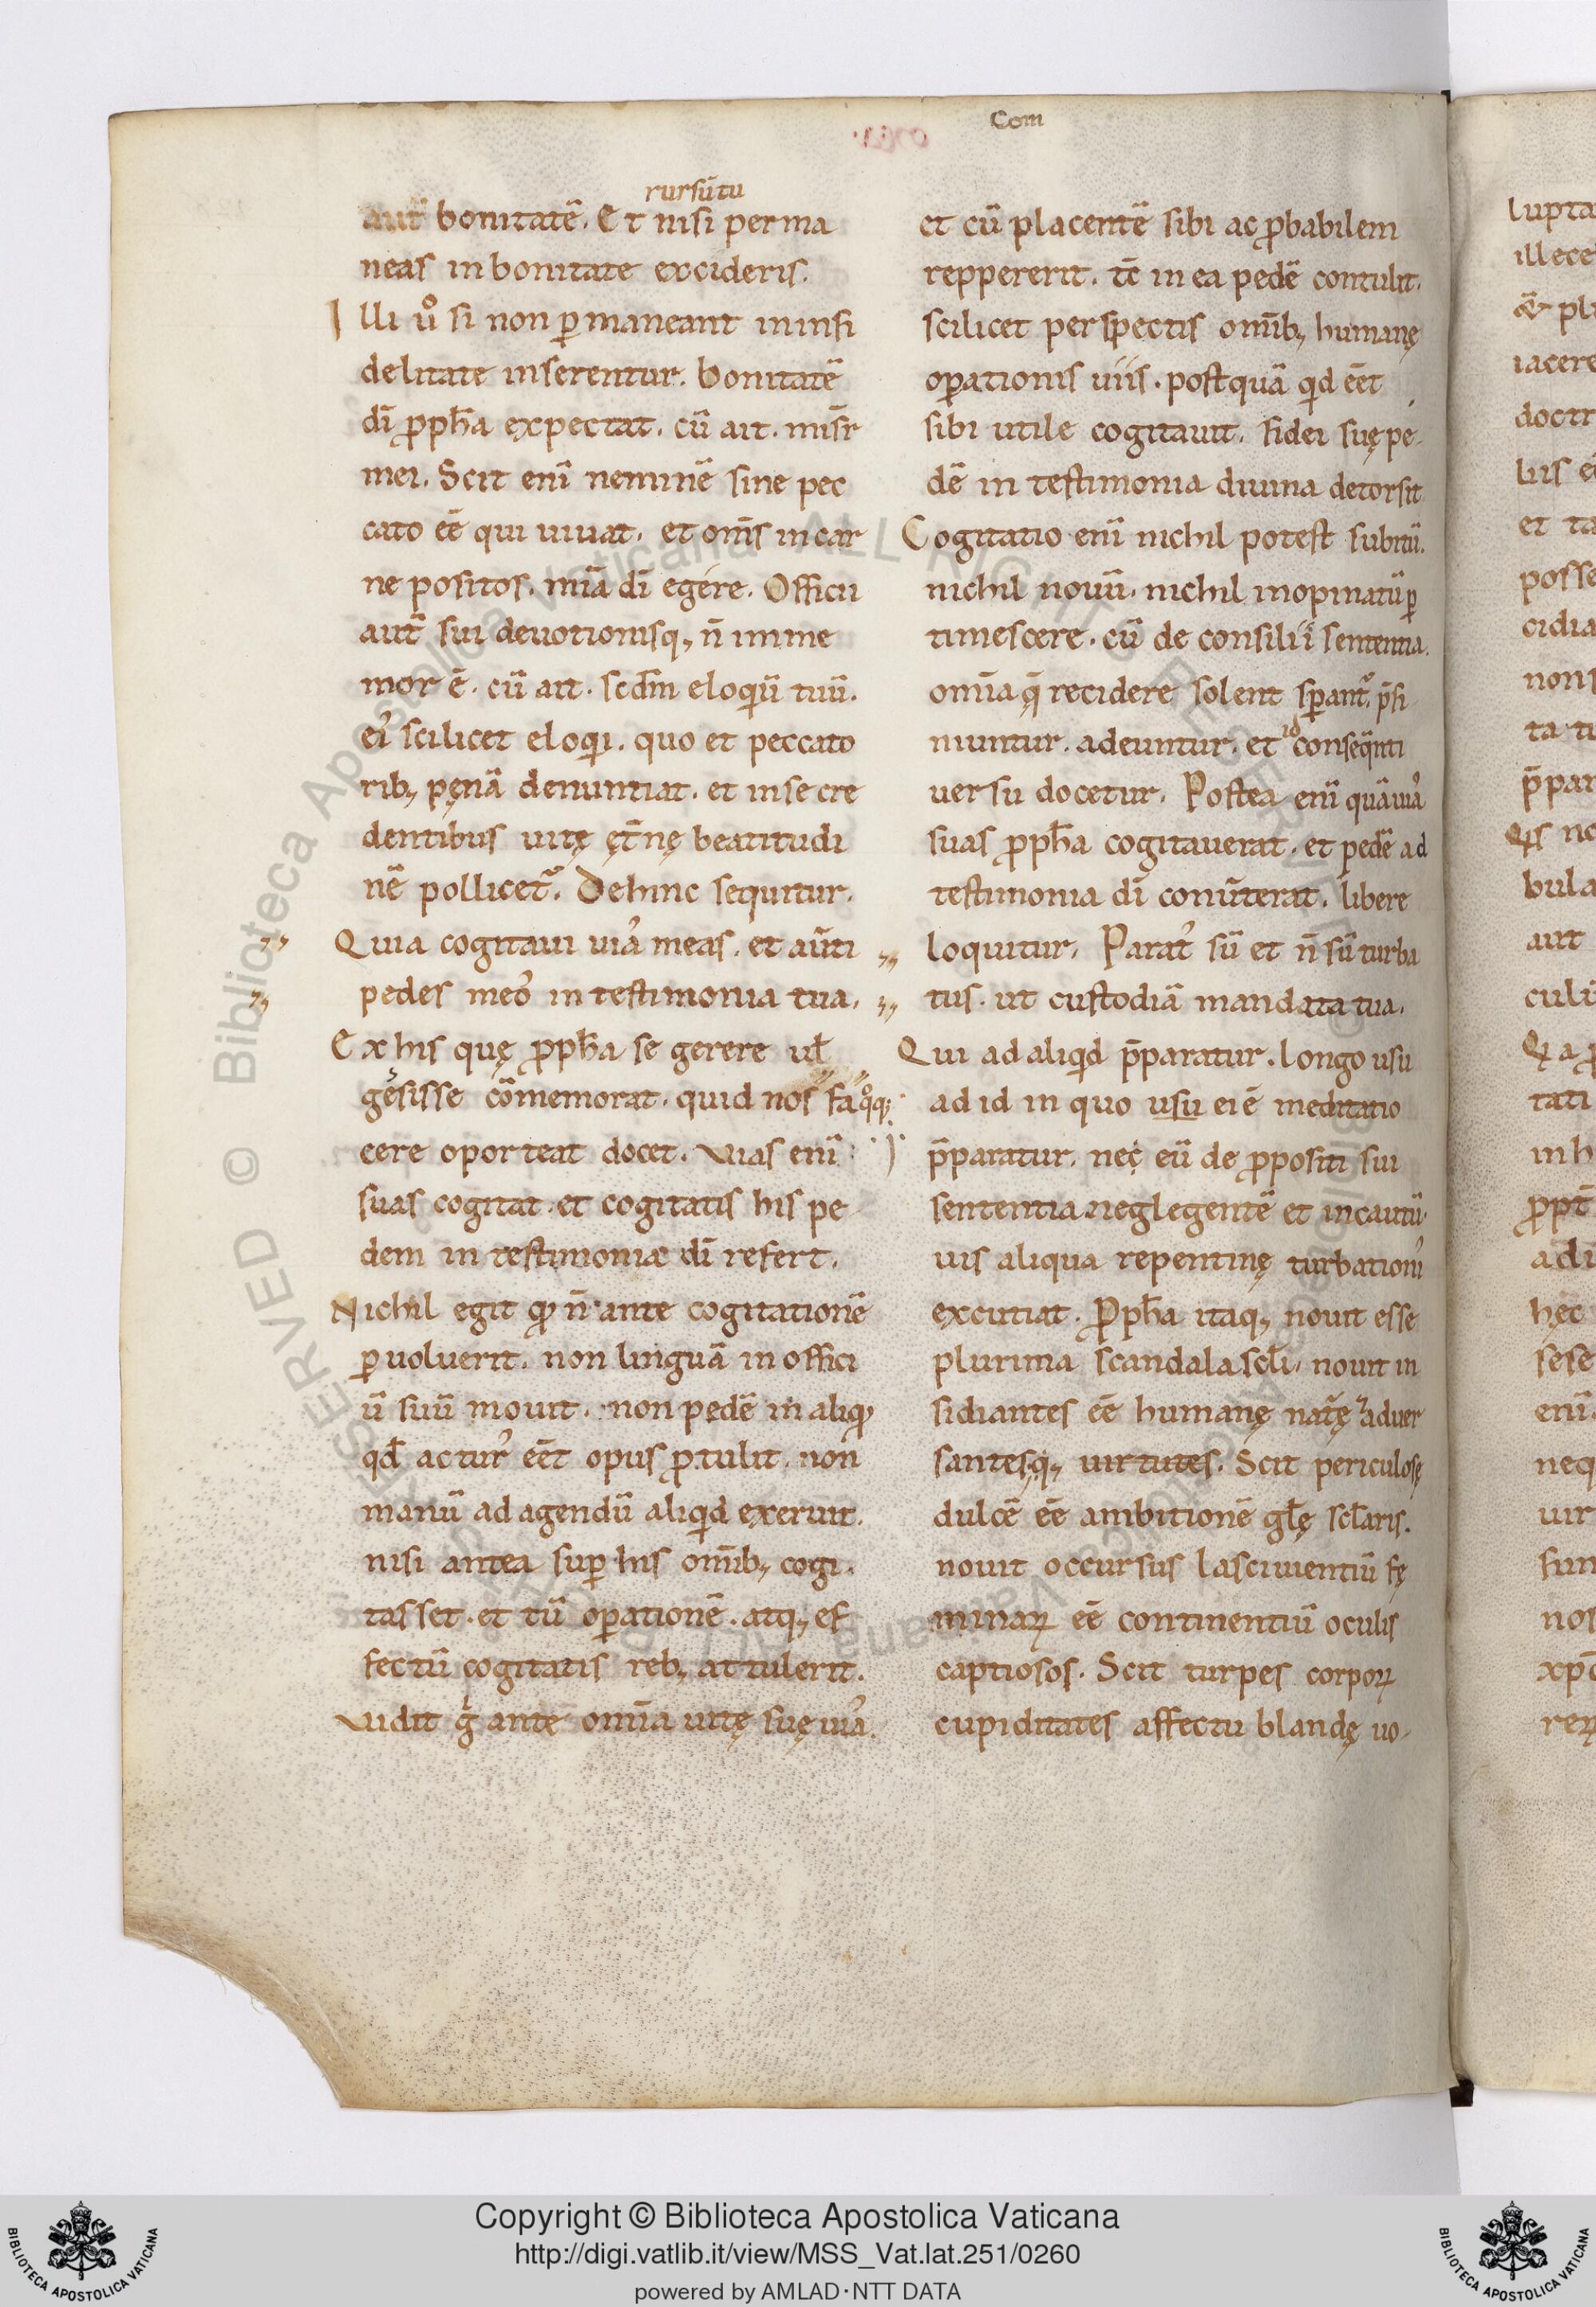 Com
rursū tu
aut̄ bonitatē. Et nisi perma
neas in bonitate excideris.
Illi ůo si non ꝑmaneant in infi
delitate inserentur. Bonitatē
dī ꝓph̄a expectat. cū ait. misr̄
mei. Scit enī neminē sine pec
cato eē qui uiuat. et om̄s in car
ne positos. mīa dī egere. Officii
aut̄ sui deuotionisq; n̄ imme
mor ē. cū ait. scdm̄ eloqiū tuū.
ei᾿ scilicet eloqii. quo et peccato
rib; pęnā denuntiat. et in se cre
dentibus uitę ęt̄nę beatitudi
nē pollicet᷑. Dehinc sequitur.
Quia cogitaui uia᾿ meas. et aūti
pedes meo᾿ in testimonia tua.
Ex his quę ꝓph̄a se gerere ul̄
gessisse cōmemorat. quid nos fa qͦq;
cere oporteat docet. Vias enī
suas cogitat. et cogitatis his pe
dem in testimonia dī refert.
Nichil egit qđ n̄ ante cogitationē
ꝑuoluerit. non linguā in offici
ū suū mouit. non pedē in aliqđ
qd̄ actur᾿ eēt opus ꝓtulit. non
manū ad agendū aliqid exeruit.
nisi antea suꝑ his om̄ib; cogi
tasset. et tū oꝑationē. atq; ef
fectū cogitatis reb; attulerit.
Vidit g̊ ante om̄ia uitę suę uia᾿.
et cū placentē sibi ac ꝓbabilem
reppererit. tē in ea pedē contulit.
scilicet perspectis om̄ib; humanę
oꝑationis uiis. postquā qid eēt
sibi utile cogitauit. fidei suę pe
dē in testimonia diuina detorsit
Cogitatio enī nichil potest subitū.
nichil nouū. nichil inopinatū ꝑ
timescere. cū de consilii sententia.
om̄ia q̄ recidere solent sꝑant᷑. p̄fi
niuntur. adeuntur. et id conseq̄nti
uersu docetur. Postea enī quā uia᾿
suas ꝓph̄a cogitauerat. et pedē ad
testimonia dī conūterat. libere
loquitur. Parat᾿ sū et n̄ sū turba
tus. ut custodiā mandata tua.
Qui ad aliqid p̄paratur. longo usu
ad id in quo usu ei ē meditatio
p̄paratur. nec eū de ꝓpositi sui
sententia neglegentē et incautū.
uis aliqua repentinę turbationi᾿
excutiat. Ꝓph̄a itaq; nouit esse
plurima scandala scl̄i. nouit in
sidiantes eē humanę nat᷑ę aduer
santesq; uirtutes. Scit periculosę
dulcē eē ambitionē gl̄ę scl̄aris.
nouit occursus lasciuientiū fę
minaꝝ eē continentiū oculis
captiosos. Scit turpes corpoꝝ
cupiditates affectu blandę uo
lupta
illece
pli
iacere
doctr
et ta
posse
cidia
non
ta ti
p̄par
Qis no
bula
aut
culū
Q a
tati
in h
ꝓpt̄
adi
hęc
sese
enī
neq
uir
fun
nos
xp
Copyright © Biblioteca Apostolica Vaticana
http://digi.vatlib.it/view/MSS_Vat.lat.251/0260
powered by AMLAD·NTT DATA
BIBLIOTECA APOSTOLICA VATICANA
BIBLIOTECA APOSTOLICA VATICANA